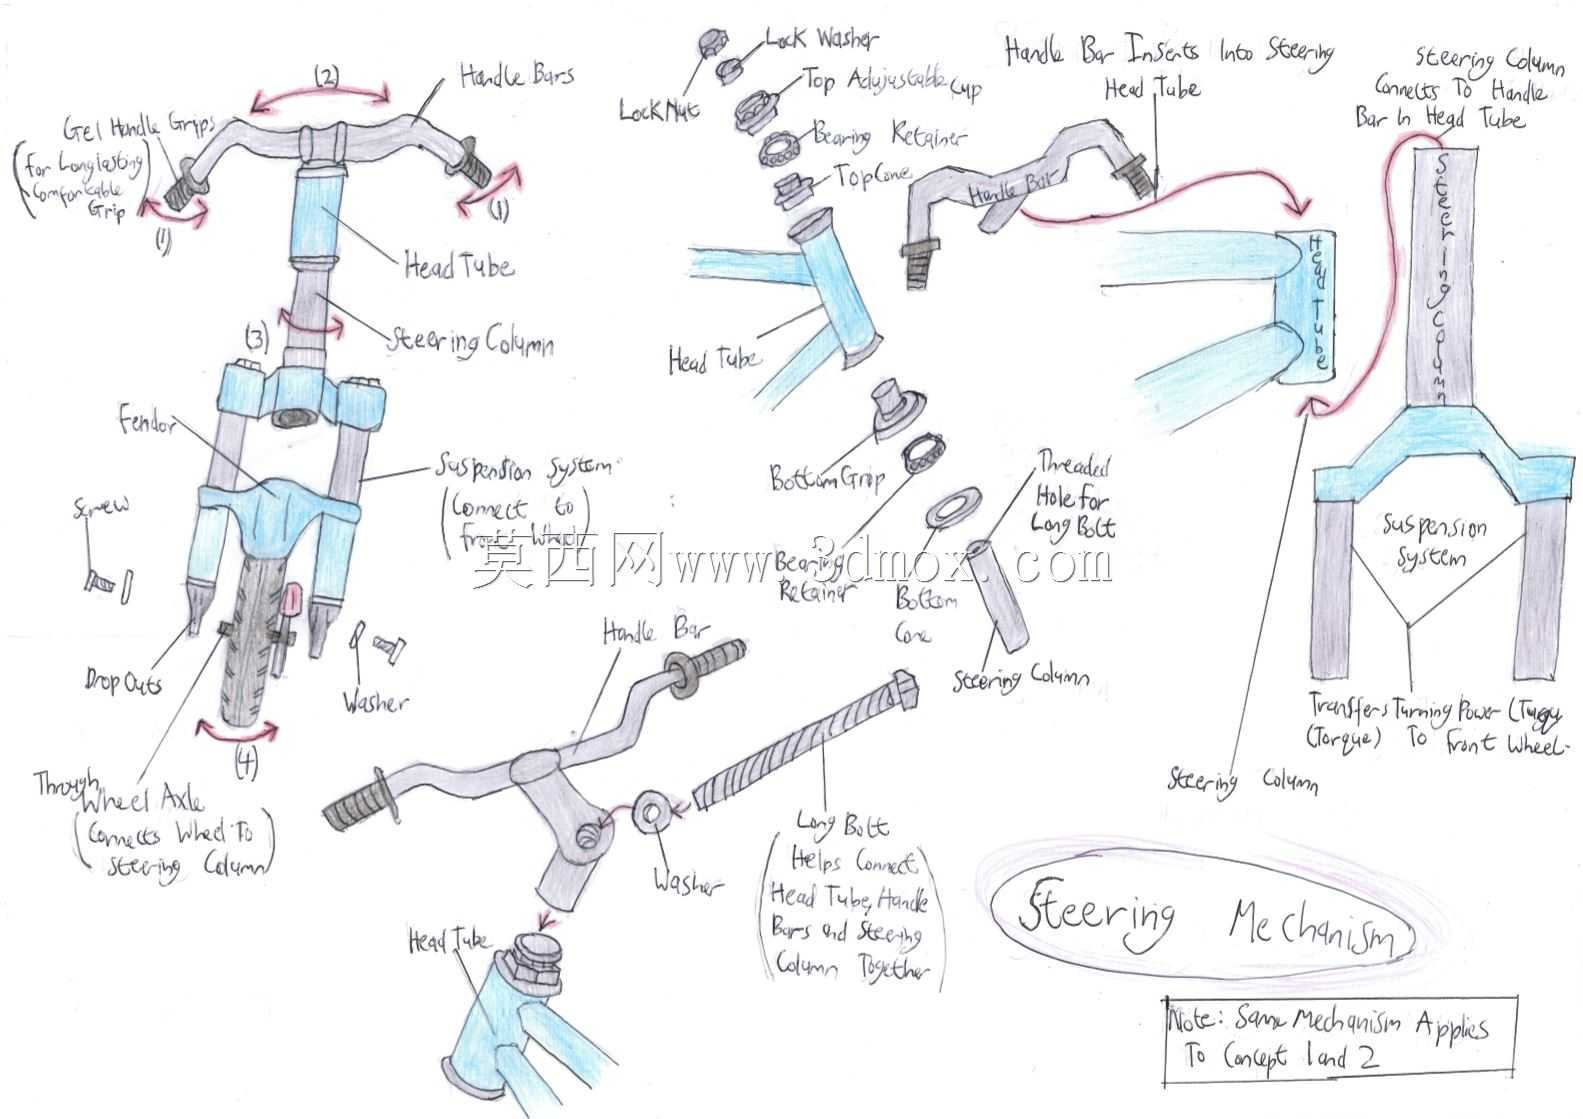 (2)
Handle Bars
Gel Handle Grips
(For Longlasting
Comfortable
Grip)
(1)
(1)
Head Tube
Steering Column
(3)
Fendor
Suspension System
(Connect to
Front Wheel)
Screw
Drop Outs
Washer
(4)
Through
Wheel Axle
(Connects Wheel To
Steering Column)
Lock Washer
Lock Nut
Top Adujustable Cup
Bearing Retainer
Top Cone
Head Tube
Bottom Grip
Bearing
Retainer
Bottom
Cone
Threaded
Hole For
Long Bolt
Steering Column
Handle Bar Inserts Into Steering
Head Tube
Handle Bar
Head Tube
Steering Column
Connects To Handle
Bar In Head Tube
Steering Column
Suspension
System
Transfers Turning Power
(Torque) To Front Wheel
Steering Column
Handle Bar
Washer
Long Bolt
(Helps Connect
Head Tube, Handle
Bars and Steering
Column Together)
Head Tube
Steering Mechanism
Note: Same Mechanism Applies
To Concept 1 and 2
莫西网www.3dmox.com